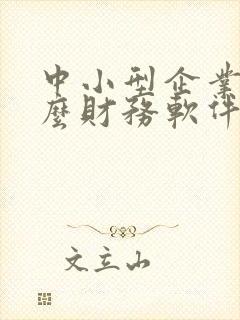 中小型企業
麼財務軟件
文立山